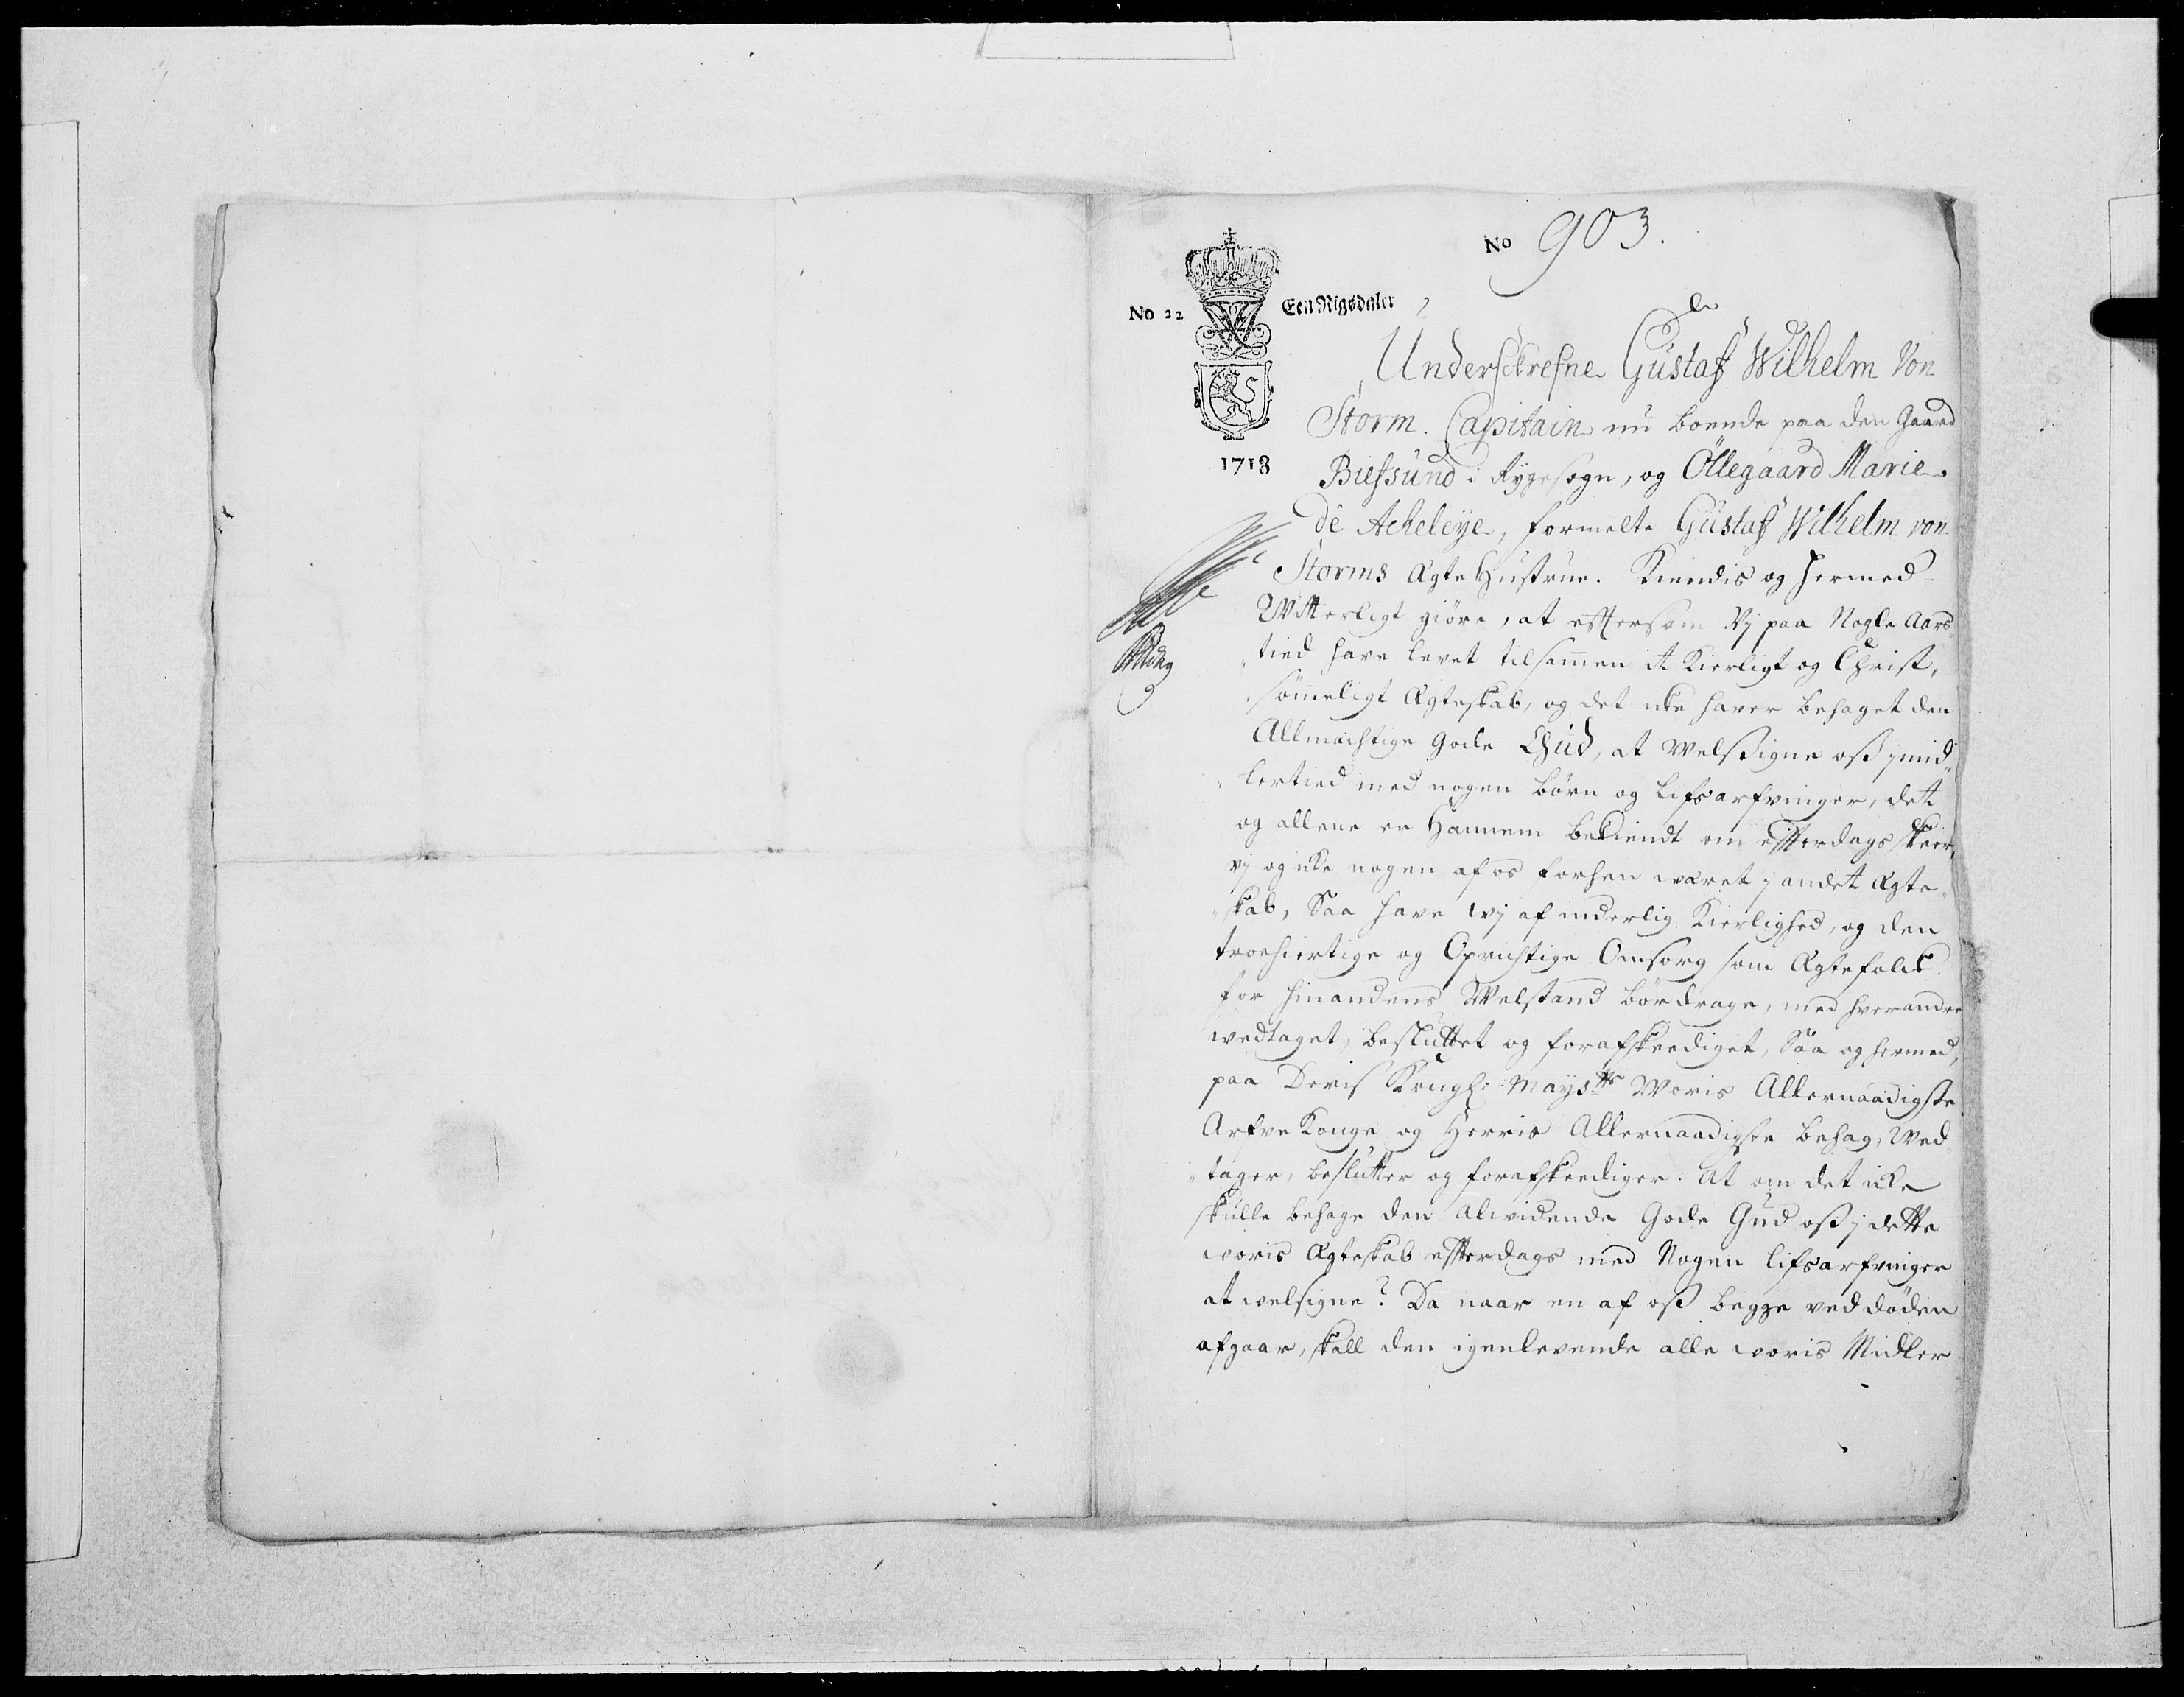 No 903.
No 22 Een Rigsdaler
1718
Underskrefne Gustaff Wilhelm Von
Storm. Capitain nu boende paa den Gaard
Biefsund i Rygesogn, og Öllegaard Marie
de Acheleye, formelte Gustaff Wilhelm von
Storms Ægte Hustrue. Kiendis og hermed
Witterligt giöre, at eftersom Vj paa Nogle Aars
tied have levet tilsammen it Kierligt og Christ,
sömmeligt Ægteskab, og det icke haver behaget den
Allmächtige Gode Gud, at Welsigne oss imid„
„lertied med nogen börn og lifsarfvinger, dett
og allene er Hannem bekiendt om efterdags skeer,
vj og icke nogen af os forhen waret j andet Ægte„
„skab, Saa have wj af inderlig Kierlighed, og den
troehiertige og Oprichtige Omsorg som Ægtefolck
for hinandens Welstand bör drage, med hverandre
wedtaget, besluttet og forafskeediget, Saa og hermed,
paa Deris Kongl: Mayts Woris Allernaadigste
Arfve Konge og Herris Allernaadigste behag, Wed
„tager, beslutter og forafskeediger: At om det icke
skulle behage den Alvidende Gode Gud oss j dette
woris Ægteskab efterdags med Nogen lifsarfvinger
at welsigne? Da naar en af oss begge ved döden
afgaar, skall den igenlevende alle woris Midler